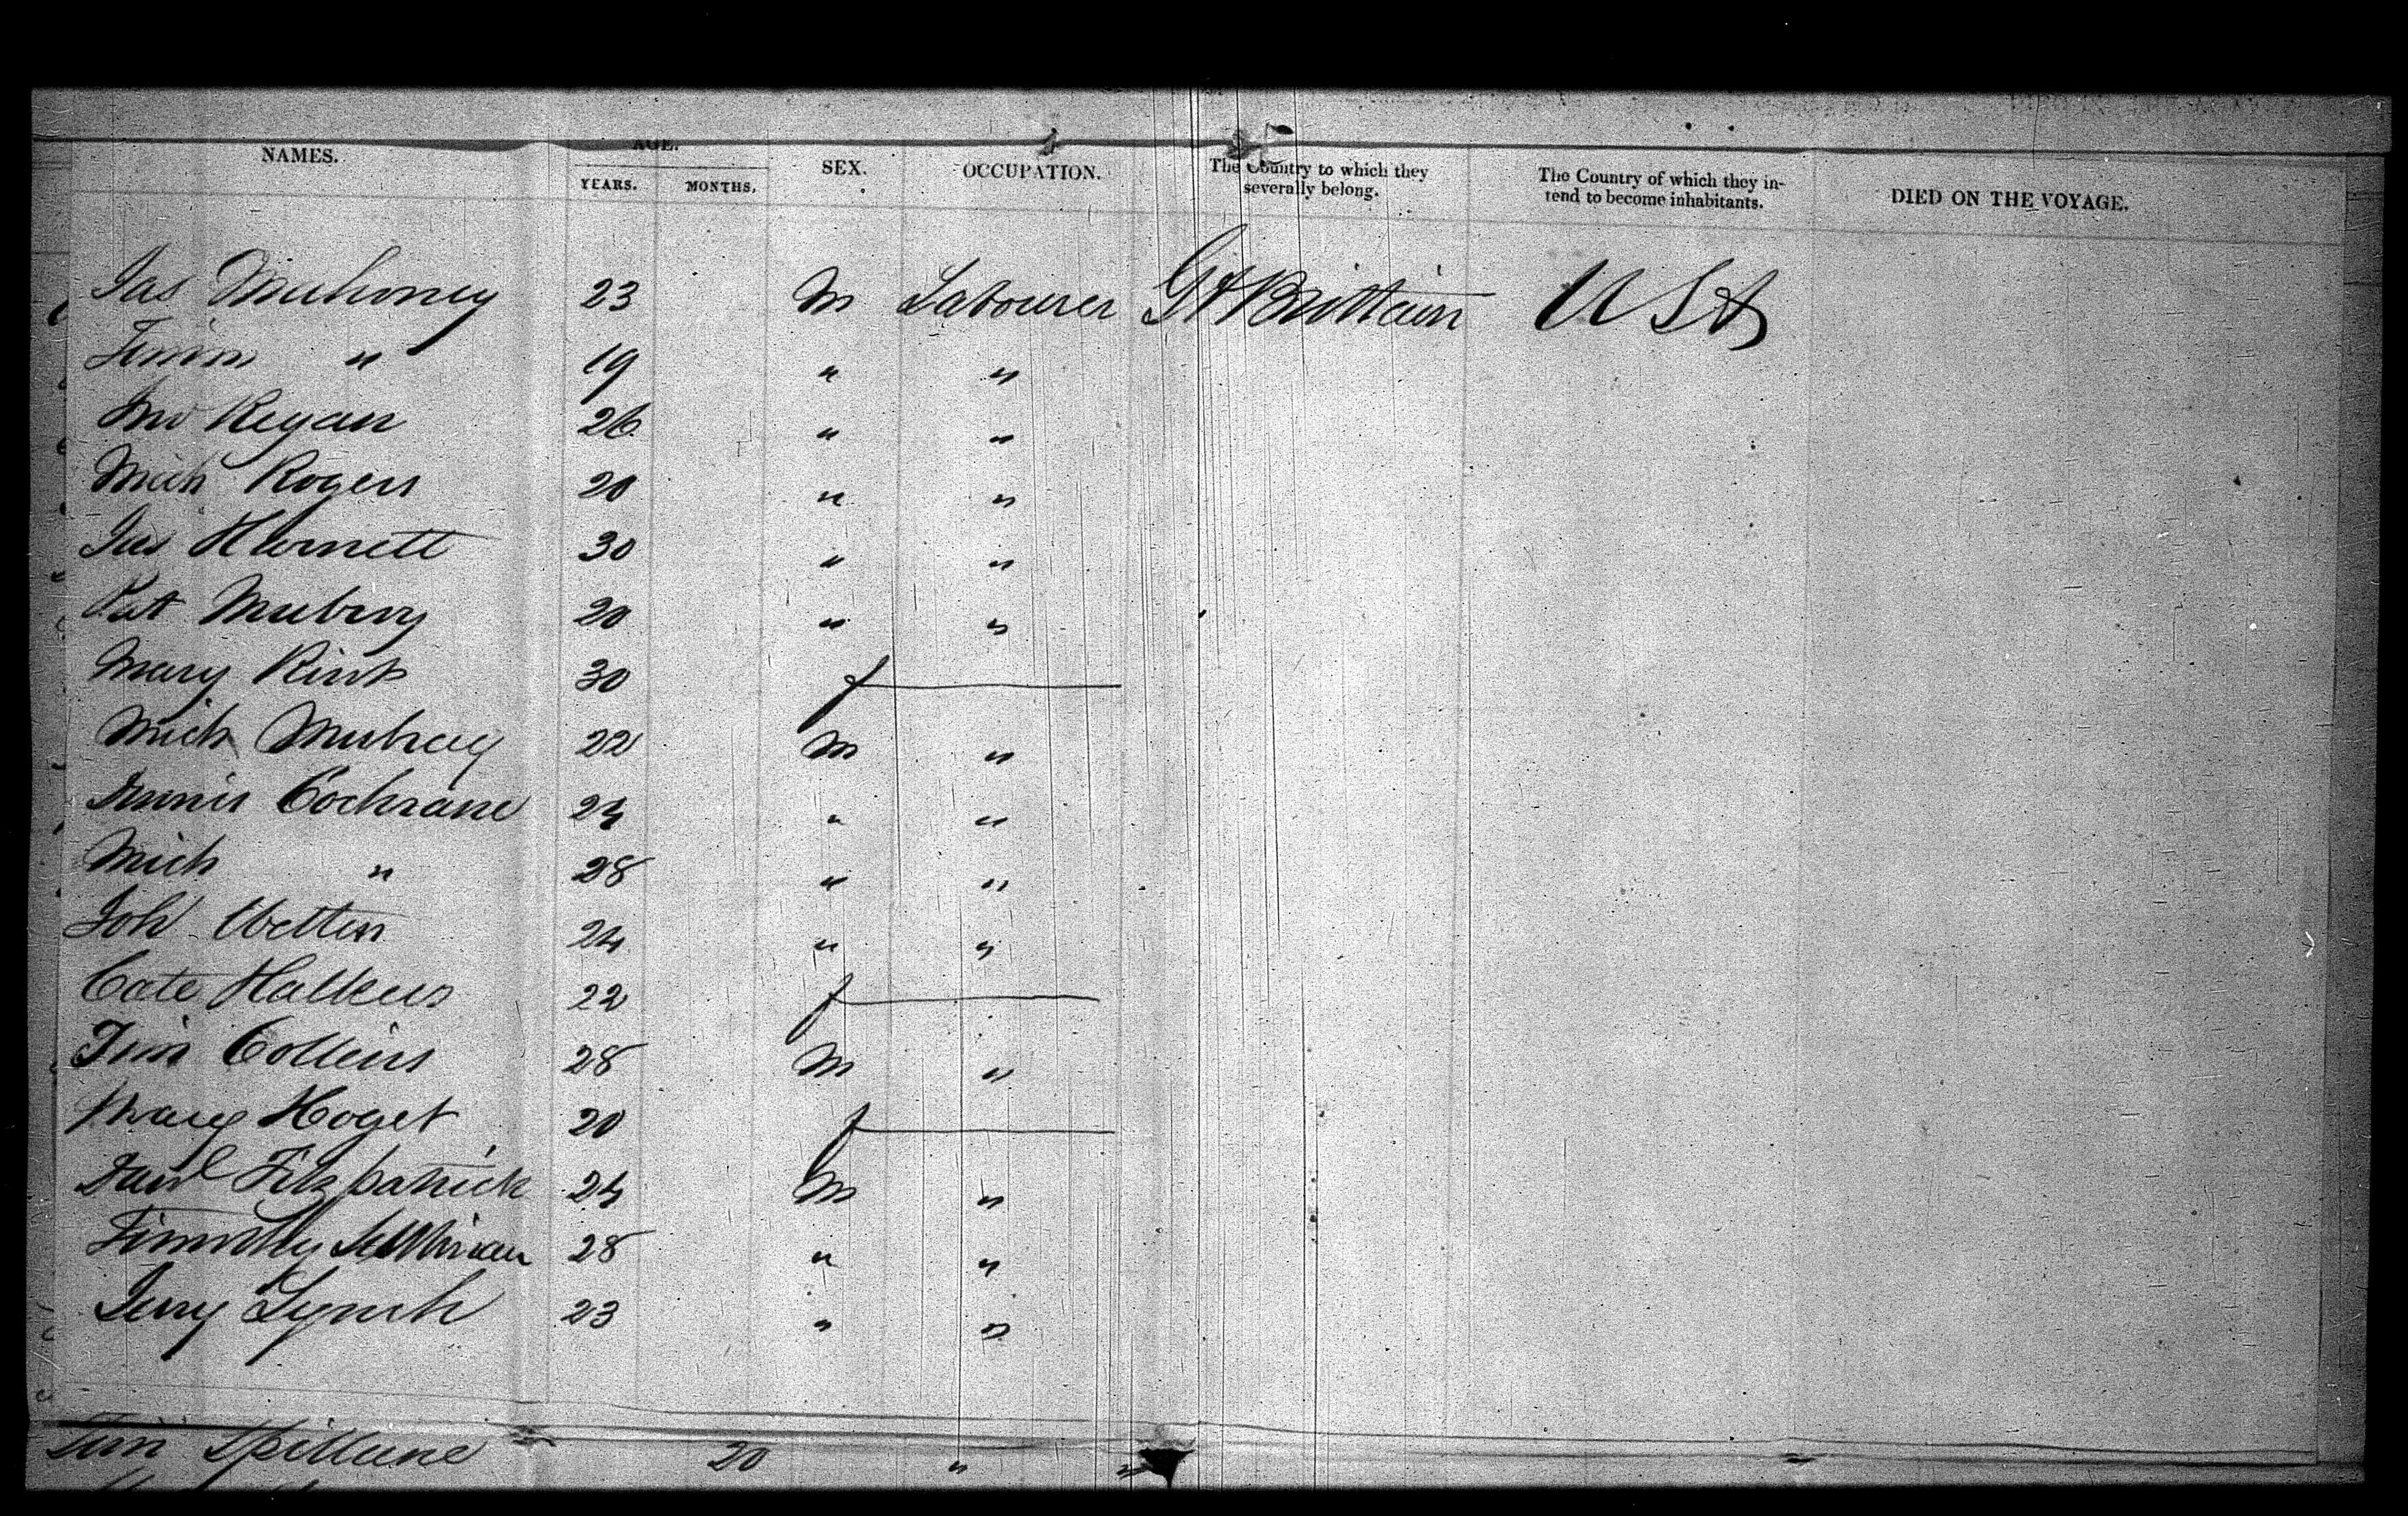 NAMES. AGE. YEARS. MONTHS. SEX. OCCUPATION. The Country to which they severally belong. The Country of which they intend to become inhabitants. DIED ON THE VOYAGE.
Jas Mahoney 23 M Labourer Gt Brittain USA
Timm " 19 " "
Jno Regan 26 " "
Mich Rogers 20 " "
Jas Harnett 30 " "
Pat 20 " "
Mary 30 f
Mich 22 M "
Dennis Cochrane 24 " "
Mich " 28 " "
Joh 24 " "
Cate 22 f
Tim Collins 28 M "
Mary Hoget 20 f
Danl Fitzpatrick 24 M "
Timothy 28 " "
Jerry Lynch 23 " "
Tim Spillane 20 " "